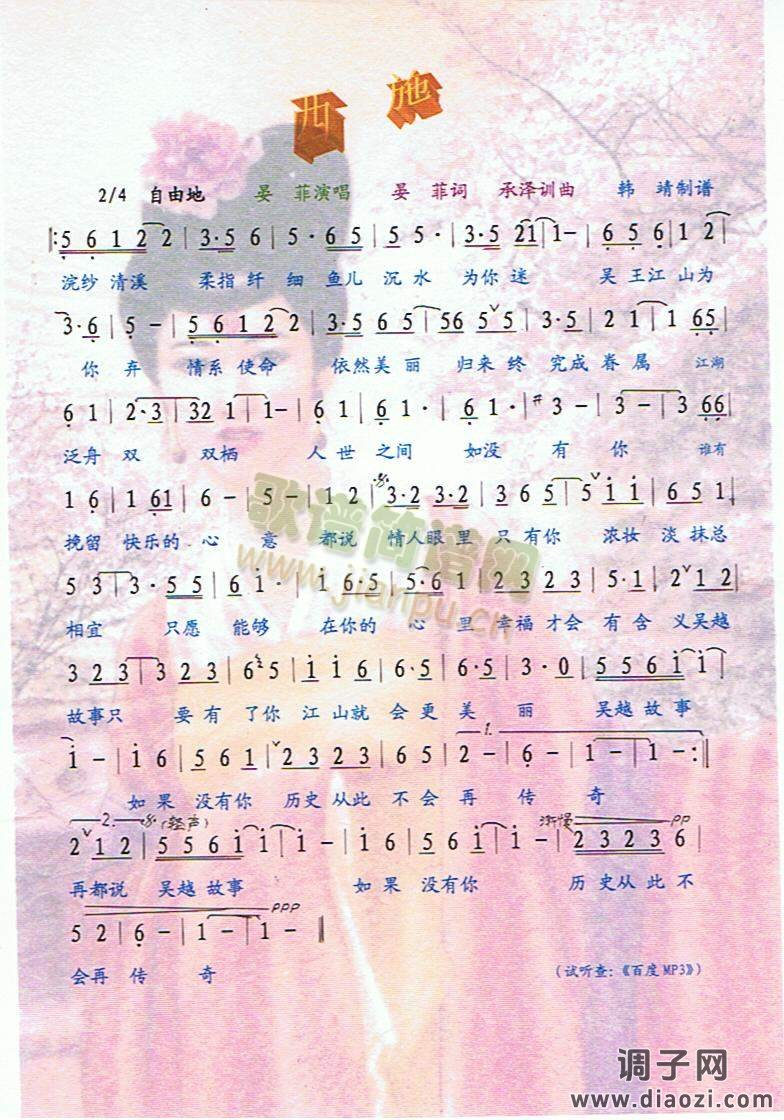 西施
2/4 自由地 晏菲演唱 晏菲词 承泽训曲 韩靖制谱
‖:5 6 1 2 2 | 3·5 6 | 5· 6 5 | 5 5· | 3·5 2 1 | 1 - | 6 5 6 | 1 2 |
浣纱 清溪 柔指 纤 细 鱼儿 沉 水 为你 迷 吴 王江 山为
3·6 | 5 - | 5 6 1 2 2 | 3·5 6 5 | 5 6 5 5 | 3·5 | 2 1 | 1 6 5 |
你 弃 情系 使命 依然美 丽 归来 终 究成 眷 属 江湖
6 1 | 2·3 | 3 2 1 | 1 - | 6 1 | 6 1· | 6 1· | #3 - | 3 - | 3 6 6 |
泛舟 双 双栖 人 世 之间 如没 有 你 谁有
1 6 | 1 6 1 | 6 - | 5 - | 1 2 | 3·2 3·2 | 3 6 5 | 5 i i | 6 5 1 |
挽留 快乐的 心 意 都说 情人眼 里 只 有你 浓妆 淡 抹总
5 3 | 3· 5 5 | 6 i· | i 6·5 | 5·6 1 | 2 3 2 3 | 5·1 | 2 1 2 |
相宜 只愿 能够 在你的 心 里 幸福 才会 有 含 义吴越
3 2 3 | 3 2 3 | 6 5 | i i 6 | 6·5 | 6·5 | 3·0 | 5 5 6 i | i
故事只 要 有 了你 江 山就 会 更 美 丽 吴越 故 事
i - | i 6 | 5 6 1 | 2 3 2 3 | 6 5 | 2 - | 6 - | 1 - | 1 - :‖
1.
如 果 没有你 历史 从此 不 会 再 传 奇
2. (轻声) 渐慢 pp
2 1 2 | 5 5 6 i | i i - | i 6 | 5 6 1 | 1 - | 2 3 2 3 6 |
再都说 吴越 故事 如 果 没有你 历 史从 此 不
ppp
5 2 | 6 - | 1 - | 1 - ‖
会再 传 奇
（试听查:《百度MP3》）
歌谱简谱网
www.jianpu.cn
调子网
www.diaozi.com